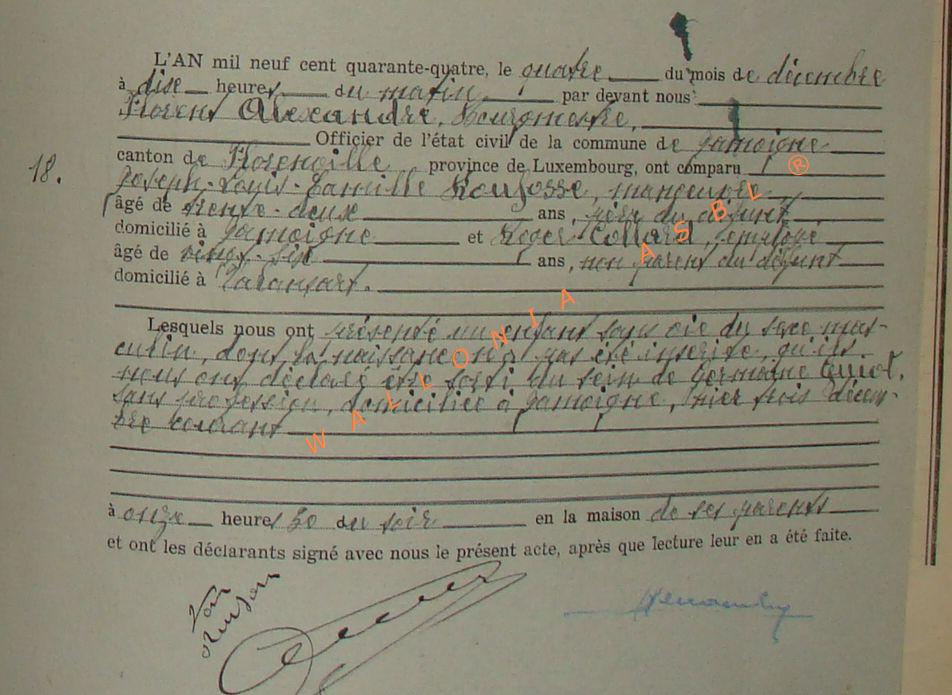 L'AN mil neuf cent quarante-quatre, le quatre du mois de décembre
à dise heures du matin par devant nous
Florent Alexandre, Bourgmestre,
Officier de l'état civil de la commune de Jamoigne
18.
canton de Florenville province de Luxembourg, ont comparu
Joseph-Louis-Camille manoeuvre
âgé de trente-deux ans, père du défunt
domicilié à Jamoigne et Roger Collard, employé
âgé de vingt-six ans, non parent du défunt
domicilié à
Lesquels nous ont présenté un enfant sans vie du sexe mas-
culin, dont la naissance n'a pas été inscrite, qu'ils
nous ont déclaré être sorti du sein de Germaine
sans profession, domiciliée à Jamoigne, hier trois décem-
bre courant
à onze heures 30 du soir en la maison de ses parents
et ont les déclarants signé avec nous le présent acte, après que lecture leur en a été faite.
WALLONIA ASBL ®